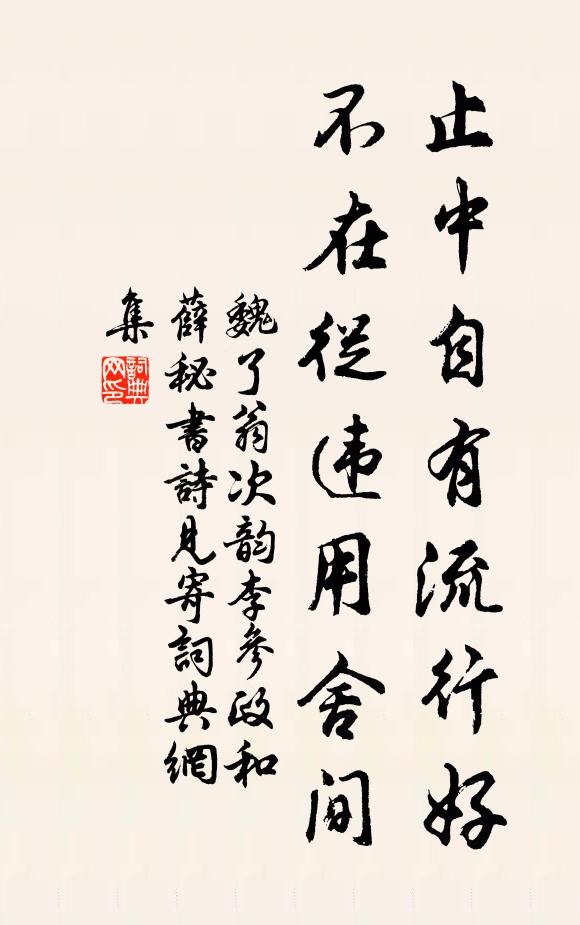 止中自有流行好
不在從违用舍间
魏了翁次韵李參政和
薛秘書詩見寄詞典網
集
詞典
网印